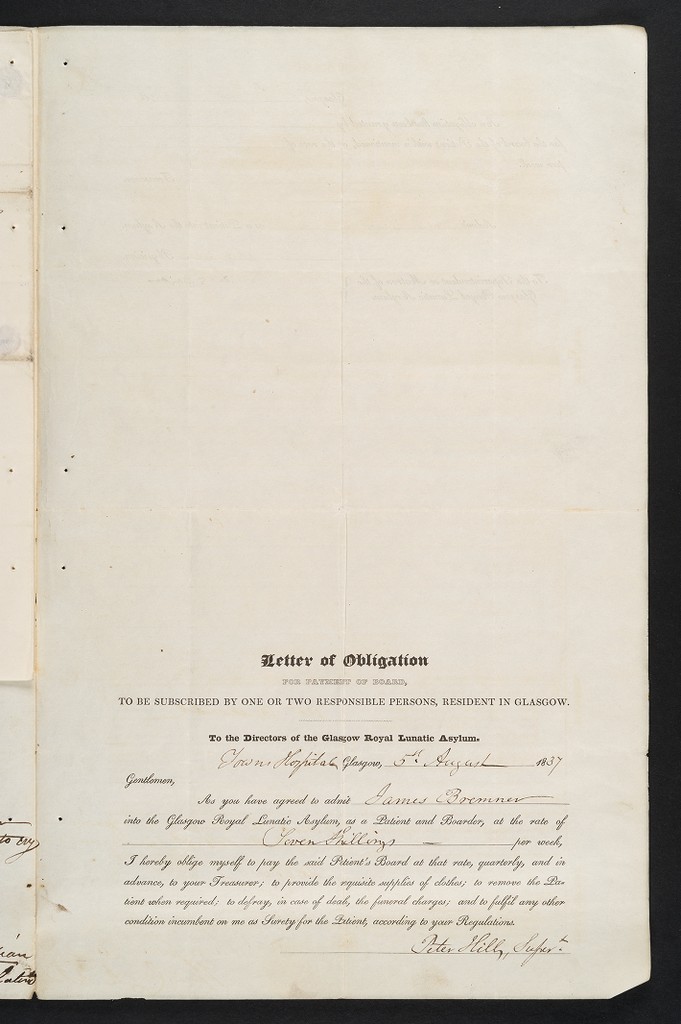 Letter of Obligation
FOR PAYMENT OF BOARD,
TO BE SUBSCRIBED BY ONE OR TWO RESPONSIBLE PERSONS, RESIDENT IN GLASGOW.
To the Directors of the Glasgow Royal Lunatic Asylum.
Towns Hospital Glasgow, 5th August 1837
Gentlemen,
As you have agreed to admit James Bremner
into the Glasgow Royal Lunatic Asylum, as a Patient and Boarder, at the rate of
Seven Shillings — per week,
I hereby oblige myself to pay the said Patient's Board at that rate, quarterly, and in
advance, to your Treasurer; to provide the requisite supplies of clothes; to remove the Pa-
tient when required; to defray, in case of death, the funeral charges; and to fulfil any other
condition incumbent on me as Surety for the Patient, according to your Regulations.
Peter Hill, Supert.